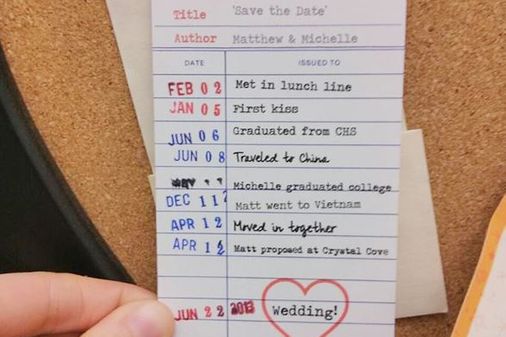 Title 'Save the Date'
Author Matthew & Michelle
DATE ISSUED TO
FEB 02 Met in lunch line
JAN 05 First kiss
JUN 06 Graduated from CHS
JUN 08 Traveled to China
Michelle graduated college
DEC 11 Matt went to Vietnam
APR 12 Moved in together
APR 12 Matt proposed at Crystal Cove
JUN 22 2013 Wedding!